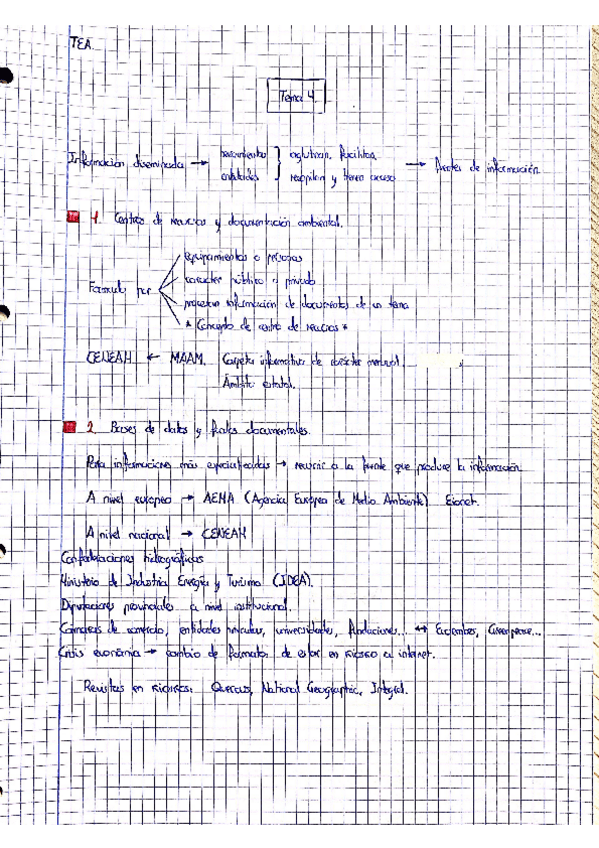 TEA.
Tema 4.
Información diseminada → herramientas } aglutinan, facilitan, → fuentes de información.
entidades recopilan y tienen acceso
1. Centros de recursos y documentación ambiental.
Formado por
equipamientos o personas
carácter público o privado
proporcionan información de documentos de un tema
* Concepto de centro de recursos *
CENEAM ← MAAM. Carpeta informativa de carácter mensual.
Ámbito estatal.
2. Bases de datos y fuentes documentales.
Para informaciones más especializadas → recurrir a la fuente que produce la información
A nivel europeo → AEMA (Agencia Europea de Medio Ambiente) Eionet.
A nivel nacional → CENEAM
Confederaciones hidrográficas
Ministerio de Industria Energía y Turismo (IDEA).
Diputaciones provinciales a nivel institucional.
Cámaras de comercio, entidades privadas, universidades, fundaciones... ↔ Ecoembes, Greenpeace...
Crisis economía → cambio de formato, de estar en físico al internet.
Revistas en Quercus, National Geographic, Integral.